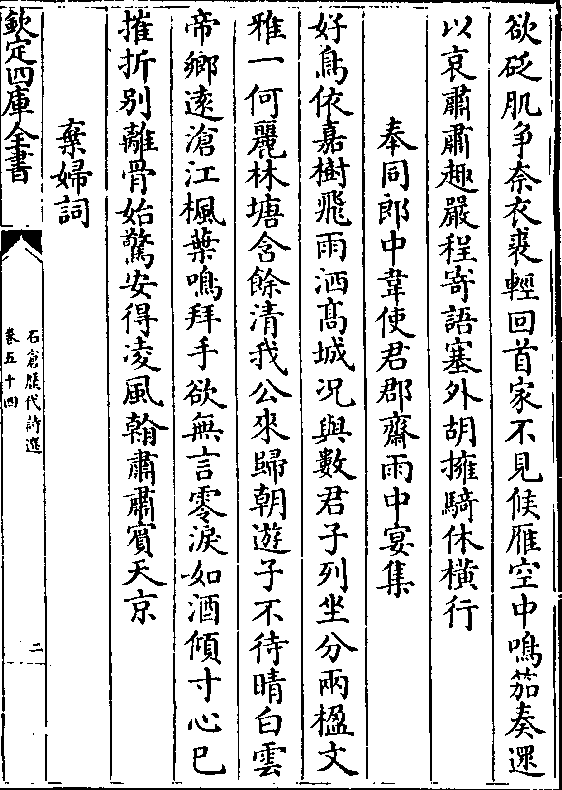 欲砭肌争奈衣裘輕回首家不見候雁空中鳴笳奏還
以哀肅肅趣嚴程寄語塞外胡擁騎休橫行
奉同郎中韋使君郡齋雨中宴集
好鳥依嘉樹飛雨洒髙城况與數君子列坐分兩楹文
雅一何麗林塘含餘清我公來歸朝遊子不待晴白雲
帝鄉逺滄江楓葉鳴拜手欲無言零淚如酒傾寸心已
摧折别離骨始驚安得凌風翰肅肅賓天京
棄婦詞
欽定四庫全書
石倉歷代詩選
卷五十四
二